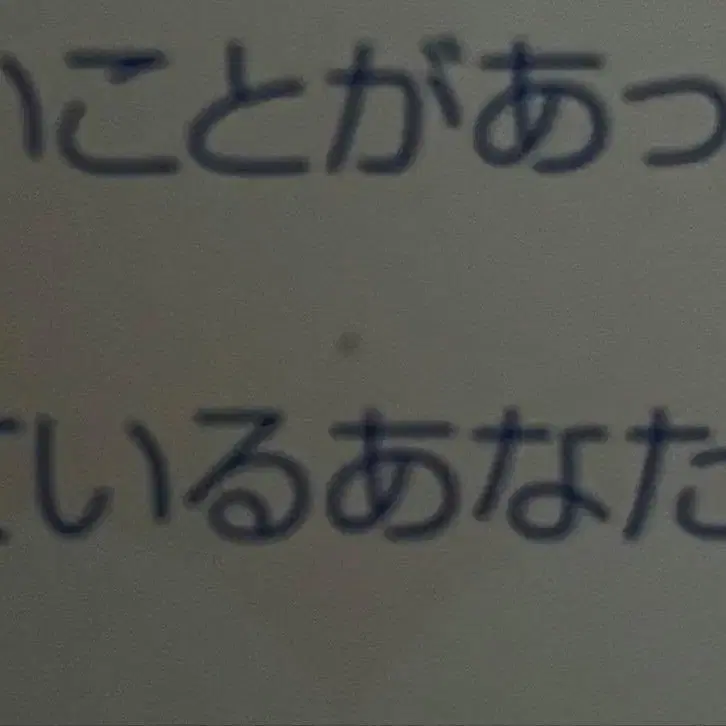 いことがあっ
ているあなた